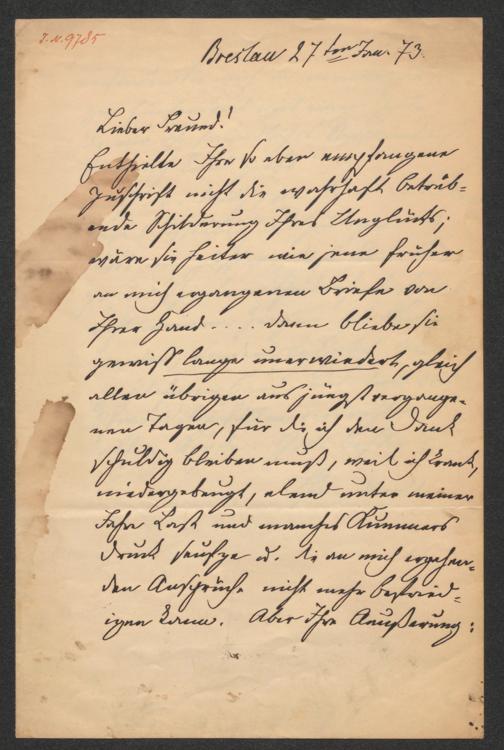 J.N. 9785
Breslau 27ten Jan. 73.
Lieber Freund!
Enthielte Ihre so eben empfangene
Zuschrift nicht die wahrhaft betrüb-
ende Schilderung Ihres Unglücks;
wäre sie heiter wie jene früher
an mich ergangenen Briefe von
Ihrer Hand .... dann bliebe sie
gewiss lange unerwiedert, gleich
allen übrigen aus jüngst vergange-
nen Tagen, für die ich den Dank
schuldig bleiben muß, weil ich krank,
niedergebeugt, elend unter meiner
Jahre Last und manches Kummers
Druck seufze u. die an mich ergehen-
den Ansprüche nicht mehr befried-
igen kann. Aber Ihre Äußerung: